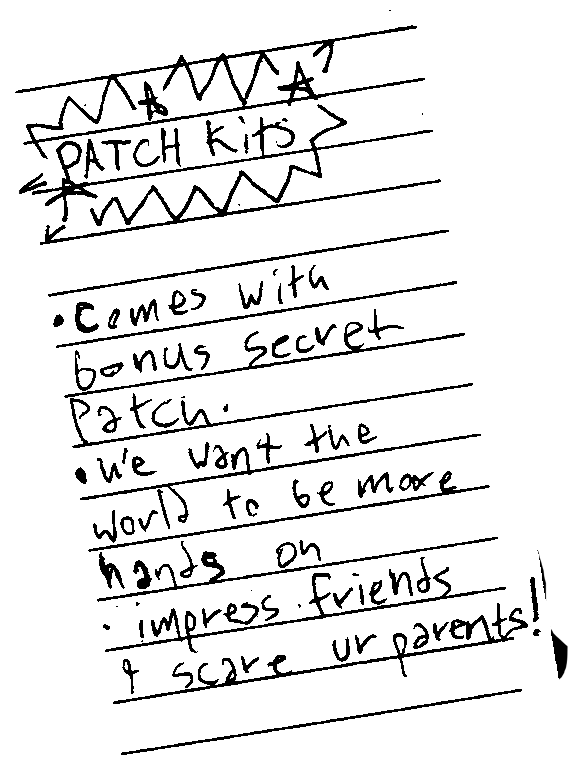 PATCH Kits
• Comes with
bonus secret
Patch.
• We want the
world to be more
hands on
• impress friends
& scare ur parents!